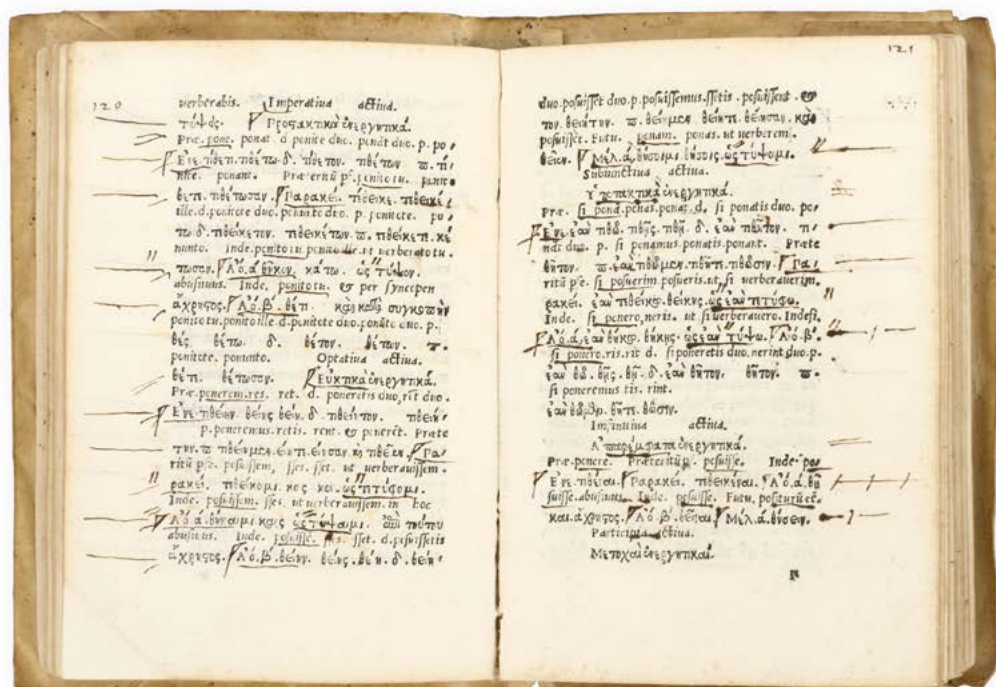 120
verberabis. Imperatiua actiua.
τύψεις. Προστακτικὰ ἐνεργητικά.
Præ. pone. ponat. d ponite duo. ponāt duo. p. po
Ενε. τίθετι. τιθέτω. δ. τίθετον τιθέτων π. τί
nite. ponant. Præteritū pf. ponito tu. ponito
θετε. τιθέτωσαν. Παρακεί. τέθεικε. τεθεικέ
ille. d. ponitote duo. ponunto duo. p. ponitote. po
τω δ. τεθείκετον. τεθεικέτων. π. τεθείκετε. κέ
nunto. Inde. ponito tu ponito ille. ut uerberato tu.
τωσαν. Αό. ά θῆκον. κάτω. ὡς τύψον.
abusiuus. Inde. ponito tu. & per syncopen
ἄχρηστος. Αό. β΄. θέτι. καὶ κατὰ συγκοπὴν
ponito tu. ponito ille. d. ponitote duo. ponūto duo. p.
θές. θέτω. δ. θέτον. θέτων. π.
ponitote. ponunto. Optatiua actiua.
θέτε. θέτωσαν. Εὐκτικὰ ἐνεργητικά.
Præ. ponerem. res. ret. d. poneretis duo, rēt duo.
Ενε. τιθείην. θείης θείη. δ. τιθείητον. τιθειή
p. poneremus. retis. rent. & ponerēt. Præte
την. π τιθείημεν. είητε. είησαν. κὶ τιθεῖεν. Πα
ritū pfe. posuissem, sses. sset. ut uerberauissem.
ρακεί. τεθείκοιμι. κοις κοι. ὡς τετύφοιμι.
Inde. posuissem. sses. ut uerberauissem. in hoc
Αό. ά. θήκαιμι καις ὡς τύψαιμι. ἀπὸ τούτου
abusiuus. Inde. posuisse. sses. sset. d. posuissetis
ἄχρηστος. Αό. β΄. θείην. θείης. θείη. δ. θείη
121
duo. posuisset duo. p. posuissemus. ssetis. posuissent. &
τον. θειήτην. π. θείημεν. θείητε. θείησαν. καὶ
posuissēt. Futu. ponam. ponas. ut uerberem.
θεῖεν. Μελ. ά. θήσοιμι. θήσοις. ὡς τύψοιμι.
Subiunctiua actiua.
Υποτακτικὰ ἐνεργητικά.
Præ. si ponā. ponas. ponat. d. si ponatis duo. po
Ενε. ἐὰν τιθῶ. τιθῇς. τιθῇ. δ. ἐὰν τιθῆτον. τι
nāt duo. p. si ponamus. ponatis. ponant. Præte
θῆτον. π. ἐὰν τιθῶμεν. τιθῆτε. τιθῶσιν. Πα
ritū pfe. si posuerim. posueris. ut, si uerberauerim.
ρακεί. ἐὰν τεθείκω. θείκης. ὡς ἐὰν τετύφω.
Inde. si ponero, neris. ut si uerberauero. Indefi.
Αό. ά. ἐὰν θήκω. θήκης. ὡς ἐὰν τύψω. Αό. β΄.
si ponero. ris. rit d. si poneretis duo. nerint duo. p.
ἐὰν θῶ. θῇς. θῇ. δ. ἐὰν θῆτον. θῆτον. π.
si poneremus tis. rint.
ἐὰν θῶμεν. θῆτε. θῶσιν.
Infinitiua actiua.
Απαρέμφατα ἐνεργητικά.
Præ. ponere. Præteritū p. posuisse. Inde. po
Ενε τιθέναι. Παρακεί. τεθεικέναι. Αό. ά. θῆ
suisse. abusiuus. Inde. posuisse. Futu. positurū eē.
και. ἄχρηστος. Αό. β΄. θεῖναι. Μέλ. ά. θήσειν.
Participia actiua.
Μετοχαὶ ἐνεργητικαί.
N